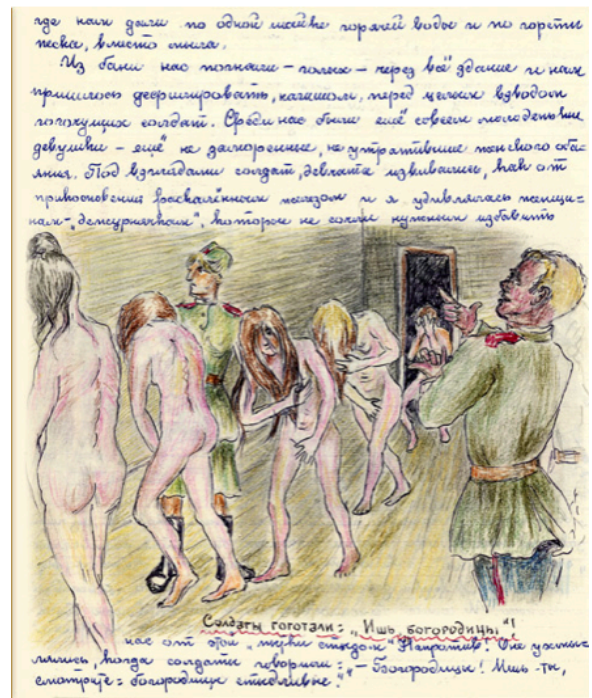 где нам дали по одной шайке горячей воды и по горсти
песка, вместо мыла.
Из бани нас погнали – голых – через всё здание и нам
пришлось дефилировать, нагишом, перед целым взводом
гогочущих солдат. Среди нас были ещё совсем молоденькие
девушки – ещё не заморенные, не утратившие женского оба-
яния. Под взглядами солдат, девчата извивались, как от
прикосновения раскалённым железом и я удивлялась женщи-
нам-„дежурнячкам", которые не сочли нужным избавить
Солдаты гоготали: „Ишь богородицы"!
нас от этой „пытки стыдом". Напротив! Они ухмы-
лялись, когда солдаты говорили: „– Богородицы! Ишь-ты,
смотрите: богородицы стыдливые!"